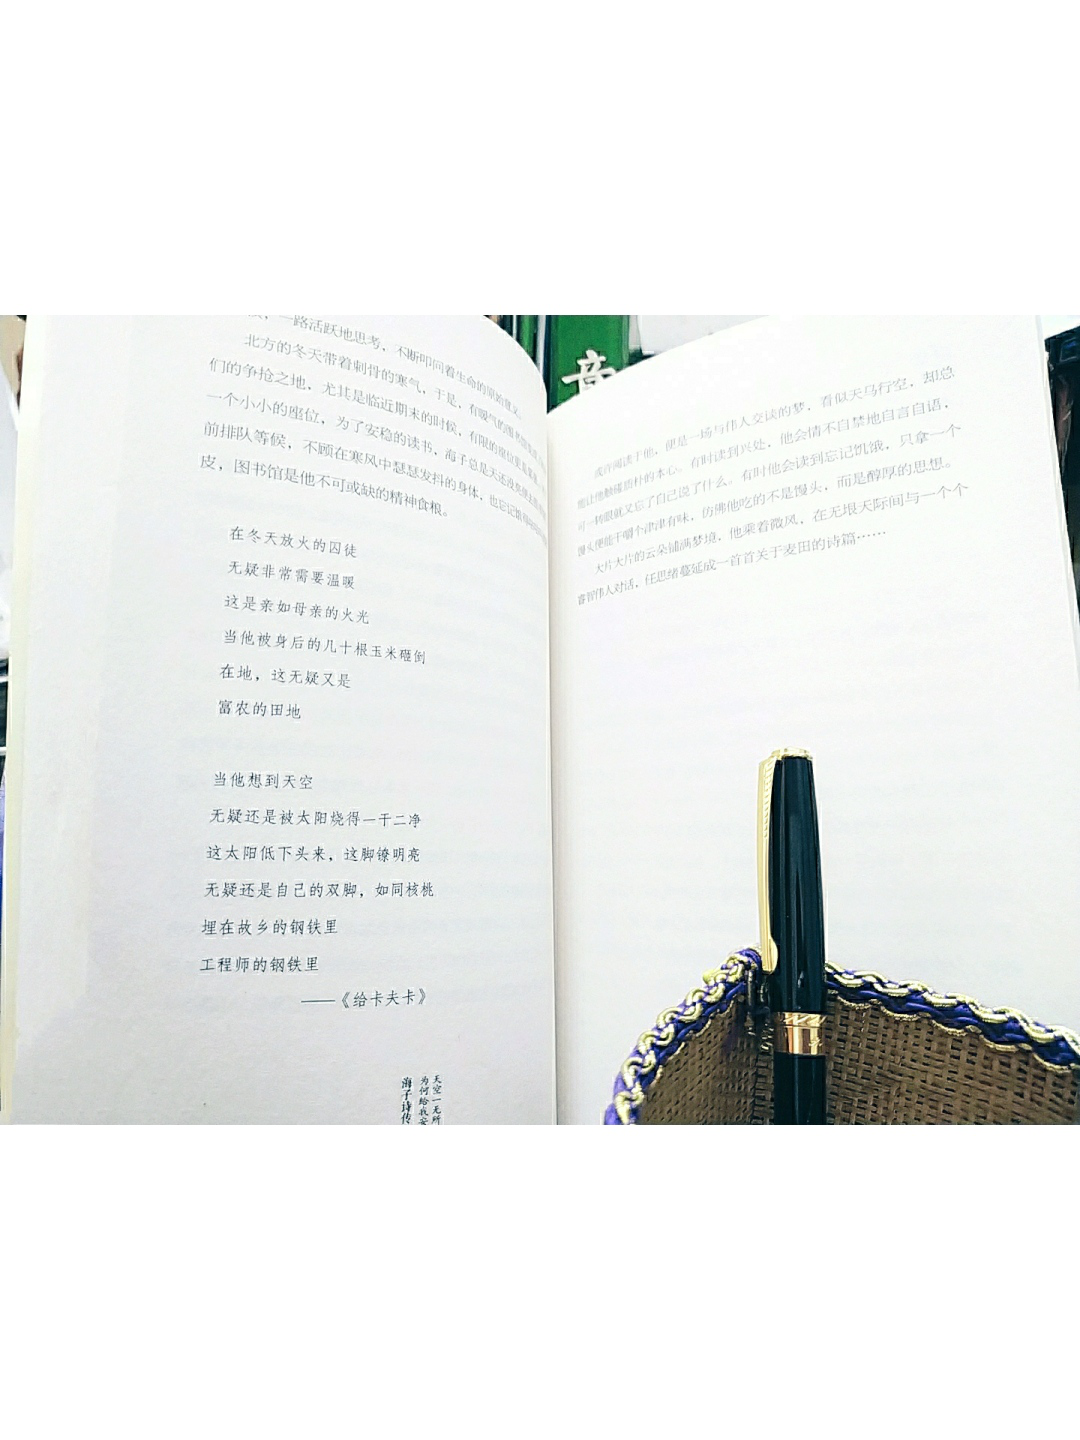 一路活跃地思考，不断叩问着生命的原始意义。
北方的冬天带着刺骨的寒气，于是，有暖气的图书馆
们的争抢之地，尤其是临近期末的时候，有限的座位更是
一个小小的座位，为了安稳的读书，海子总是天还没亮便去图
前排队等候，不顾在寒风中瑟瑟发抖的身体，也忘记饿得
皮，图书馆是他不可或缺的精神食粮。
在冬天放火的囚徒
无疑非常需要温暖
这是亲如母亲的火光
当他被身后的几十根玉米砸倒
在地，这无疑又是
富农的田地
当他想到天空
无疑还是被太阳烧得一干二净
这太阳低下头来，这脚镣明亮
无疑还是自己的双脚，如同核桃
埋在故乡的钢铁里
工程师的钢铁里
——《给卡夫卡》
天空一无所
为何给我安
海子诗传
或许阅读于他，便是一场与伟人交谈的梦，看似天马行空，却总
能让他触碰质朴的本心。有时读到兴处，他会情不自禁地自言自语，
可一转眼就又忘了自己说了什么。有时他会读到忘记饥饿，只拿一个
馒头便能干嚼个津津有味，仿佛他吃的不是馒头，而是醇厚的思想。
大片大片的云朵铺满梦境，他乘着微风，在无垠天际间与一个个
睿智伟人对话，任思绪蔓延成一首首关于麦田的诗篇……